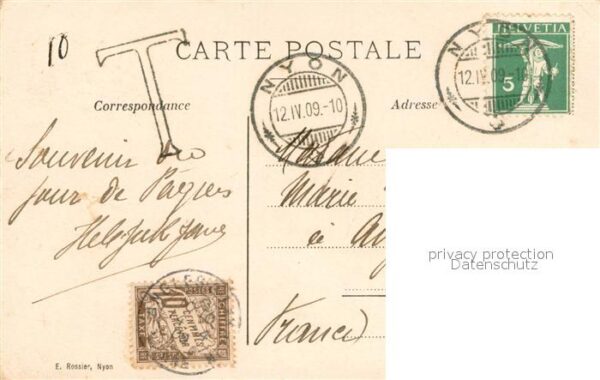 10
T
CARTE POSTALE
NYON
12.IV.09.-10
NYON
12.IV.09.-10
HELVETIA
5
Correspondance
Adresse
Souvenir du
jour de Pâques
Madame
Marie
à
France
privacy protection
Datenschutz
10
CENTIMES
A PERCEVOIR
CHIFFRE
TAXE
E. Rossier, Nyon